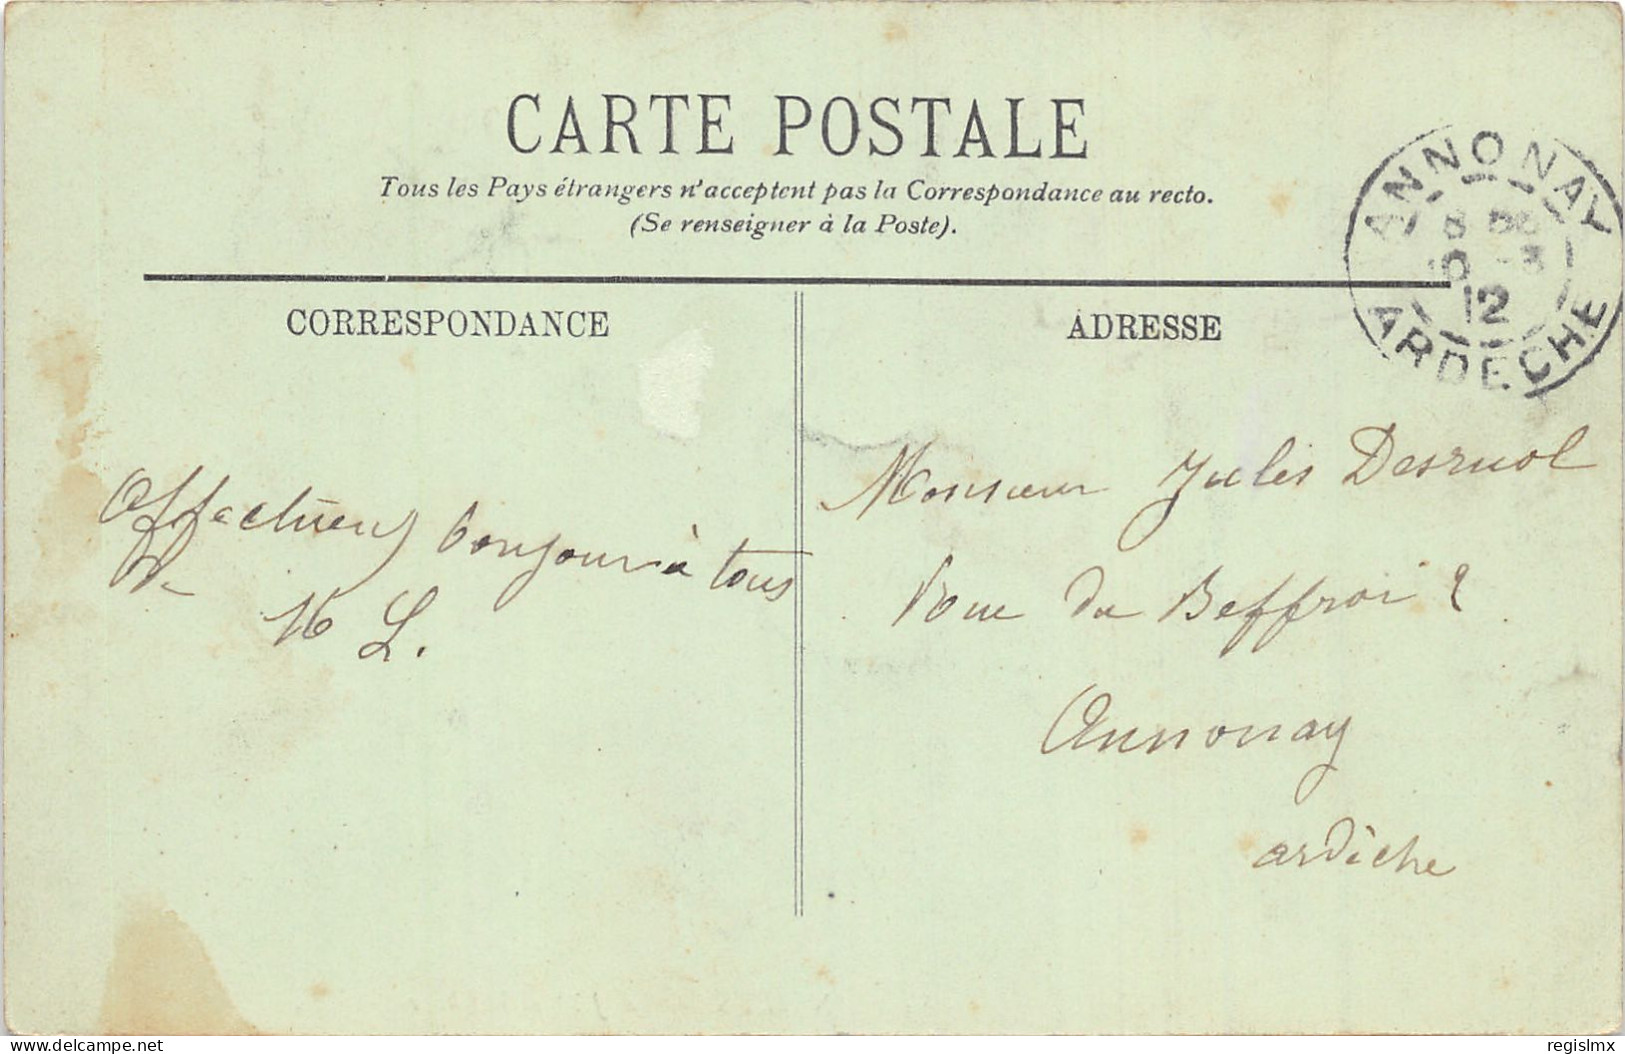 CARTE POSTALE
Tous les Pays étrangers n'acceptent pas la Correspondance au recto.
(Se renseigner à la Poste).
ANNONAY
12
ARDECHE
CORRESPONDANCE
ADRESSE
Affectueux bonjour à tous
L.
Monsieur Jules Desruol
Rue du Beffroi 2
Annonay
ardèche
www.delcampe.net
regislmx